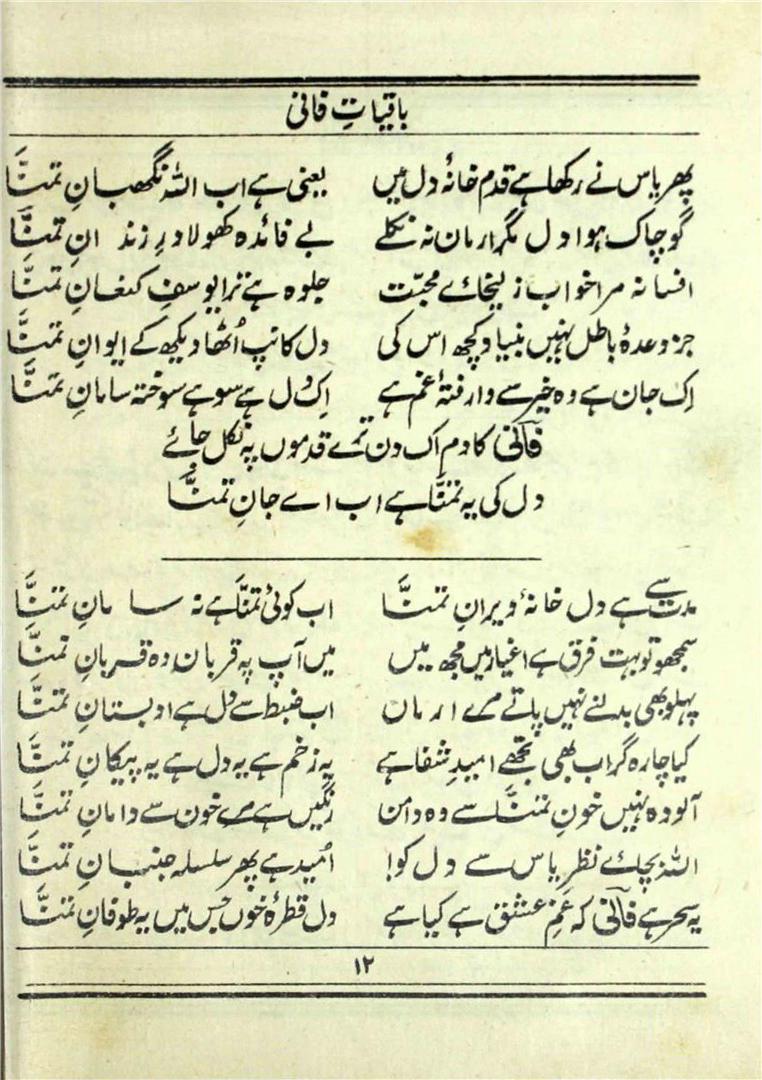 باقیاتِ فانی
پھر یاس نے رکھا ہے قدم خانۂ دل میں یعنی ہے اب اللہ نگہبانِ تمنّا
گو چاک ہوا دل مگر ارمان نہ نکلے بے فائدہ کھولا درِ زندانِ تمنّا
افسانہ مرا خواب زلیخائے محبّت جلوہ ہے ترا یوسفِ کنعانِ تمنّا
جز وعدۂ باطل نہیں بنیاد کچھ اس کی دل کانپ اُٹھا دیکھ کے ایوانِ تمنّا
اِک جان ہے وہ خیر سے وارفتۂ غم ہے اِک دل ہے سو ہے سوختہ سامانِ تمنّا
فانی کا دم اک دن ترے قدموں پہ نکل جائے
دل کی یہ تمنّا ہے اب اے جانِ تمنّا
مدت سے ہے دل خانۂ ویرانِ تمنّا اب کوئی تمنّا ہے نہ سامانِ تمنّا
سمجھو تو بہت فرق ہے اغیار میں مجھ میں میں آپ پہ قربان وہ قربانِ تمنّا
پہلو بھی بدلنے نہیں پاتے مرے ارماں اب ضبط سے دل ہے ادبستانِ تمنّا
کیا چارہ گر اب بھی تجھے امیدِ شفا ہے یہ زخم ہے یہ دل ہے یہ پیکانِ تمنّا
آلودہ نہیں خونِ تمنّا سے وہ دامن رنگیں ہے مرے خون سے دامانِ تمنّا
اللہ بچائے نظرِ یاس سے دل کو! اُمید ہے پھر سلسلہ جنبانِ تمنّا
یہ سحر ہے فانی کہ غمِ عشق ہے کیا ہے دل قطرۂ خوں جس میں یہ طوفانِ تمنّا
۱۲